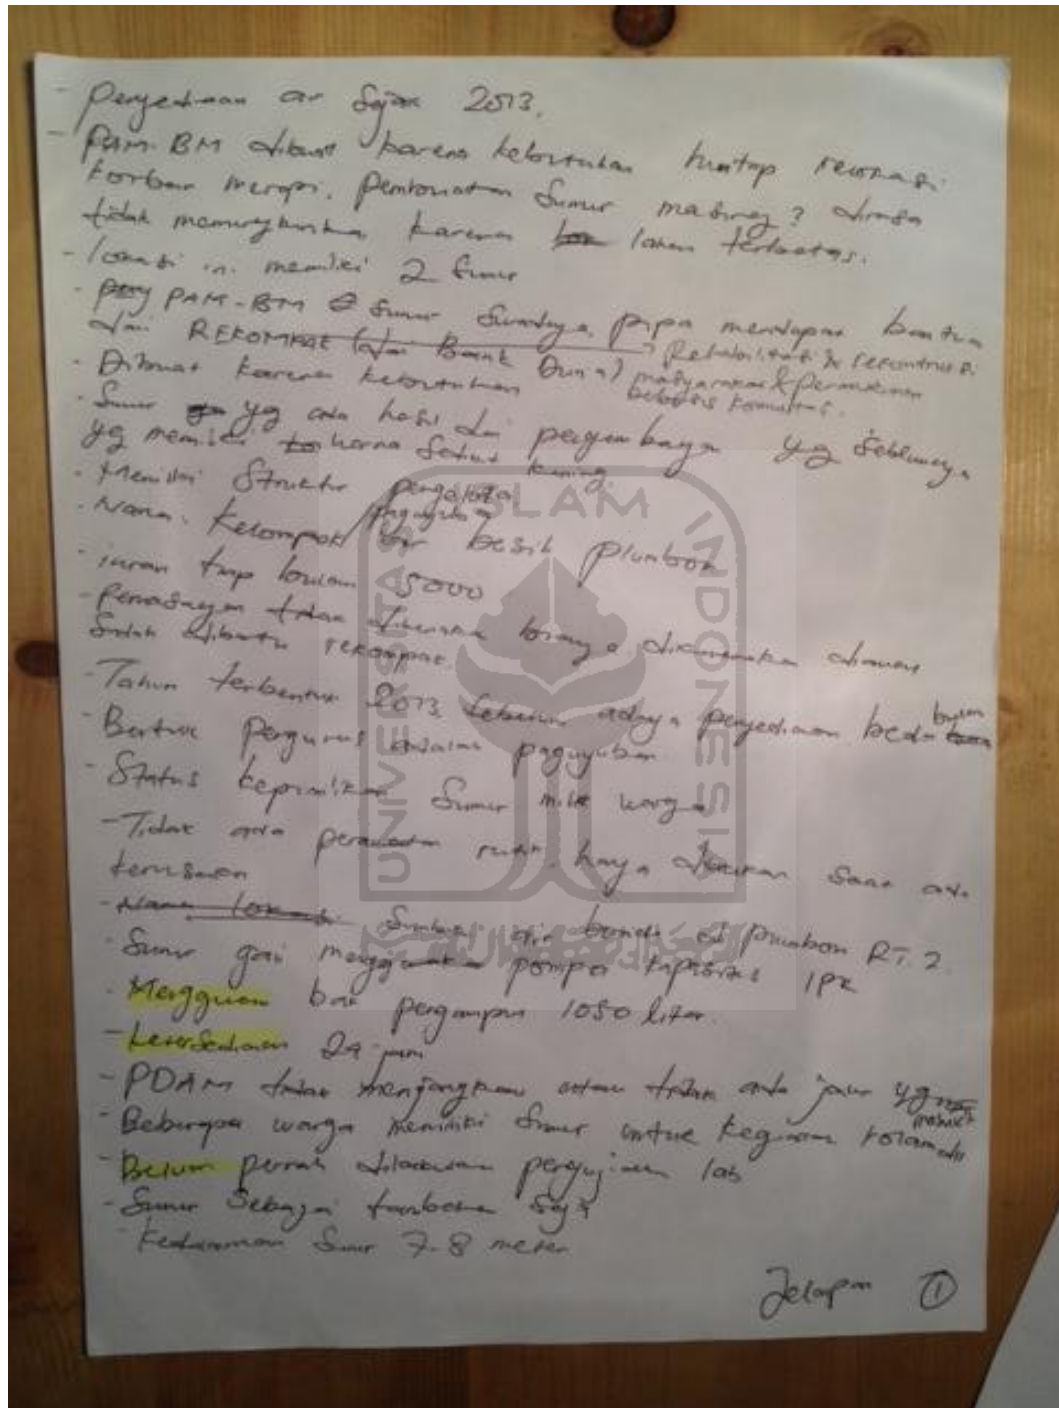 - Penyediaan air sejak 2013.
- PAM-BM dibuat karena kebutuhan huntap relokasi
korban merapi. Pembuatan Sumur masing2 dirasa
tidak memungkinkan karena lahan terbatas.
- lokasi ini memiliki 2 Sumur
- PAM-BM Sumur Swadaya, pipa mendapat bantuan
dari REKOMPAK (dari Bank Dunia) → Rehabilitasi & rekontruksi
masyarakat & permukiman
berbasis komunitas.
- Dibuat karena kebutuhan
- Sumur yg ada hasil dari pengembangan yg Sebelumnya
yg memiliki warna sedikit kuning.
- Memiliki Struktur pengelola
- Nama. Kelompok/paguyuban air bersih plumbon
- iuran tiap bulan 5000
- Pemasangan tidak dikenakan biaya dikarenakan
Sudah dibantu rekompak.
- Tahun terbentuk 2013, Sebelum adanya penyediaan beda bulan
- Bentuk pengurus adalah paguyuban
- Status kepemilikan Sumur milik warga
- Tidak ada perawatan rutin, hanya dilakukan saat ada
kerusakan
- Nama lokasi Sumber air berada di plumbon RT. 2
- Sumur gali menggunakan pompa kapasitas 1PK
- Menggunakan bak penampung 1050 liter.
- Ketersediaan 24 jam
- PDAM tidak menjangkau atau tidak ada jalur yg masuk
- Beberapa warga memiliki Sumur untuk kegiatan kolam dll
- Belum pernah dilakukan pengujian lab
- Sumur Sebagai tambahan Saja
- Kedalaman Sumur 7-8 meter
Jelapan ①
UNIVERSITAS ISLAM INDONESIA